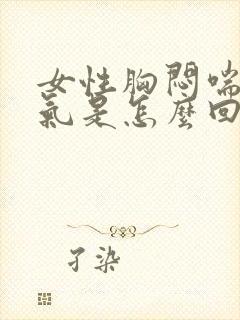 女性胸悶喘
氣是怎麼回
孑染